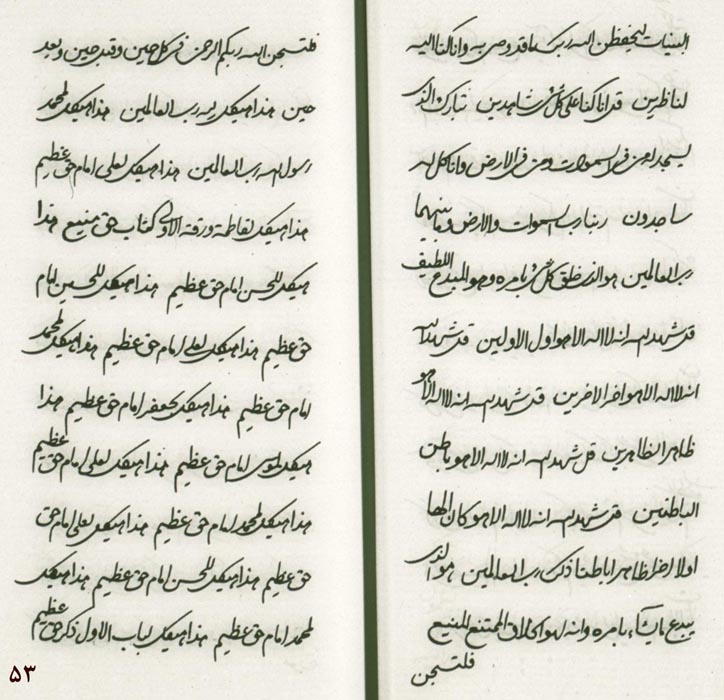 البينات ليحفظن الله ربك ما قدوصى به وانا كنا اليه
لناظرين قد انا كنا على كل شئ شاهدين تبارك الذى
يسجد له من فى السموات ومن فى الارض وانا كل له
ساجدون ربنا رب السموات والارض وما بينهما
رب العالمين هو الذى خلق كل شئ بامره وهو المبدع اللطيف
قد شهد الله انه لا اله الا هو اول الاولين قد شهد الله
انه لا اله الا هو اخر الاخرين قد شهد الله انه لا اله الا هو
ظاهر الظاهرين قل شهد الله انه لا اله الا هو باطن
الباطنين قد شهد الله انه لا اله الا هو كان الها
اولا اخرا ظاهرا باطنا ذلك رب العالمين هو الذى
يبدع ما يشآء بامره وانه لهو الخلاق الممتنع المنيع
فلتسجن
فلتسجن الله ربكم الرحمن فى كل حين وقبل حين وبعد
حين هذا هيكل لله رب العالمين هذا هيكل لمحمد
رسول الله رب العالمين هذا هيكل لعلى امام حق عظيم
هذا هيكل لفاطمة ورقة الاولى كتاب حق منيع هذا
هيكل للحسن امام حق عظيم هذا هيكل للحسين امام
حق عظيم هذا هيكل لعلى امام حق عظيم هذا هيكل لمحمد
امام حق عظيم هذا هيكل لجعفر امام حق عظيم هذا
هيكل لموسى امام حق عظيم هذا هيكل لعلى امام حق عظيم
هذا هيكل لمحمد امام حق عظيم هذا هيكل لعلى امام حق
عظيم هذا هيكل للحسن امام حق عظيم هذا هيكل
لمحمد امام حق عظيم هذا هيكل لباب الاول ذكر حق عظيم
۵۳